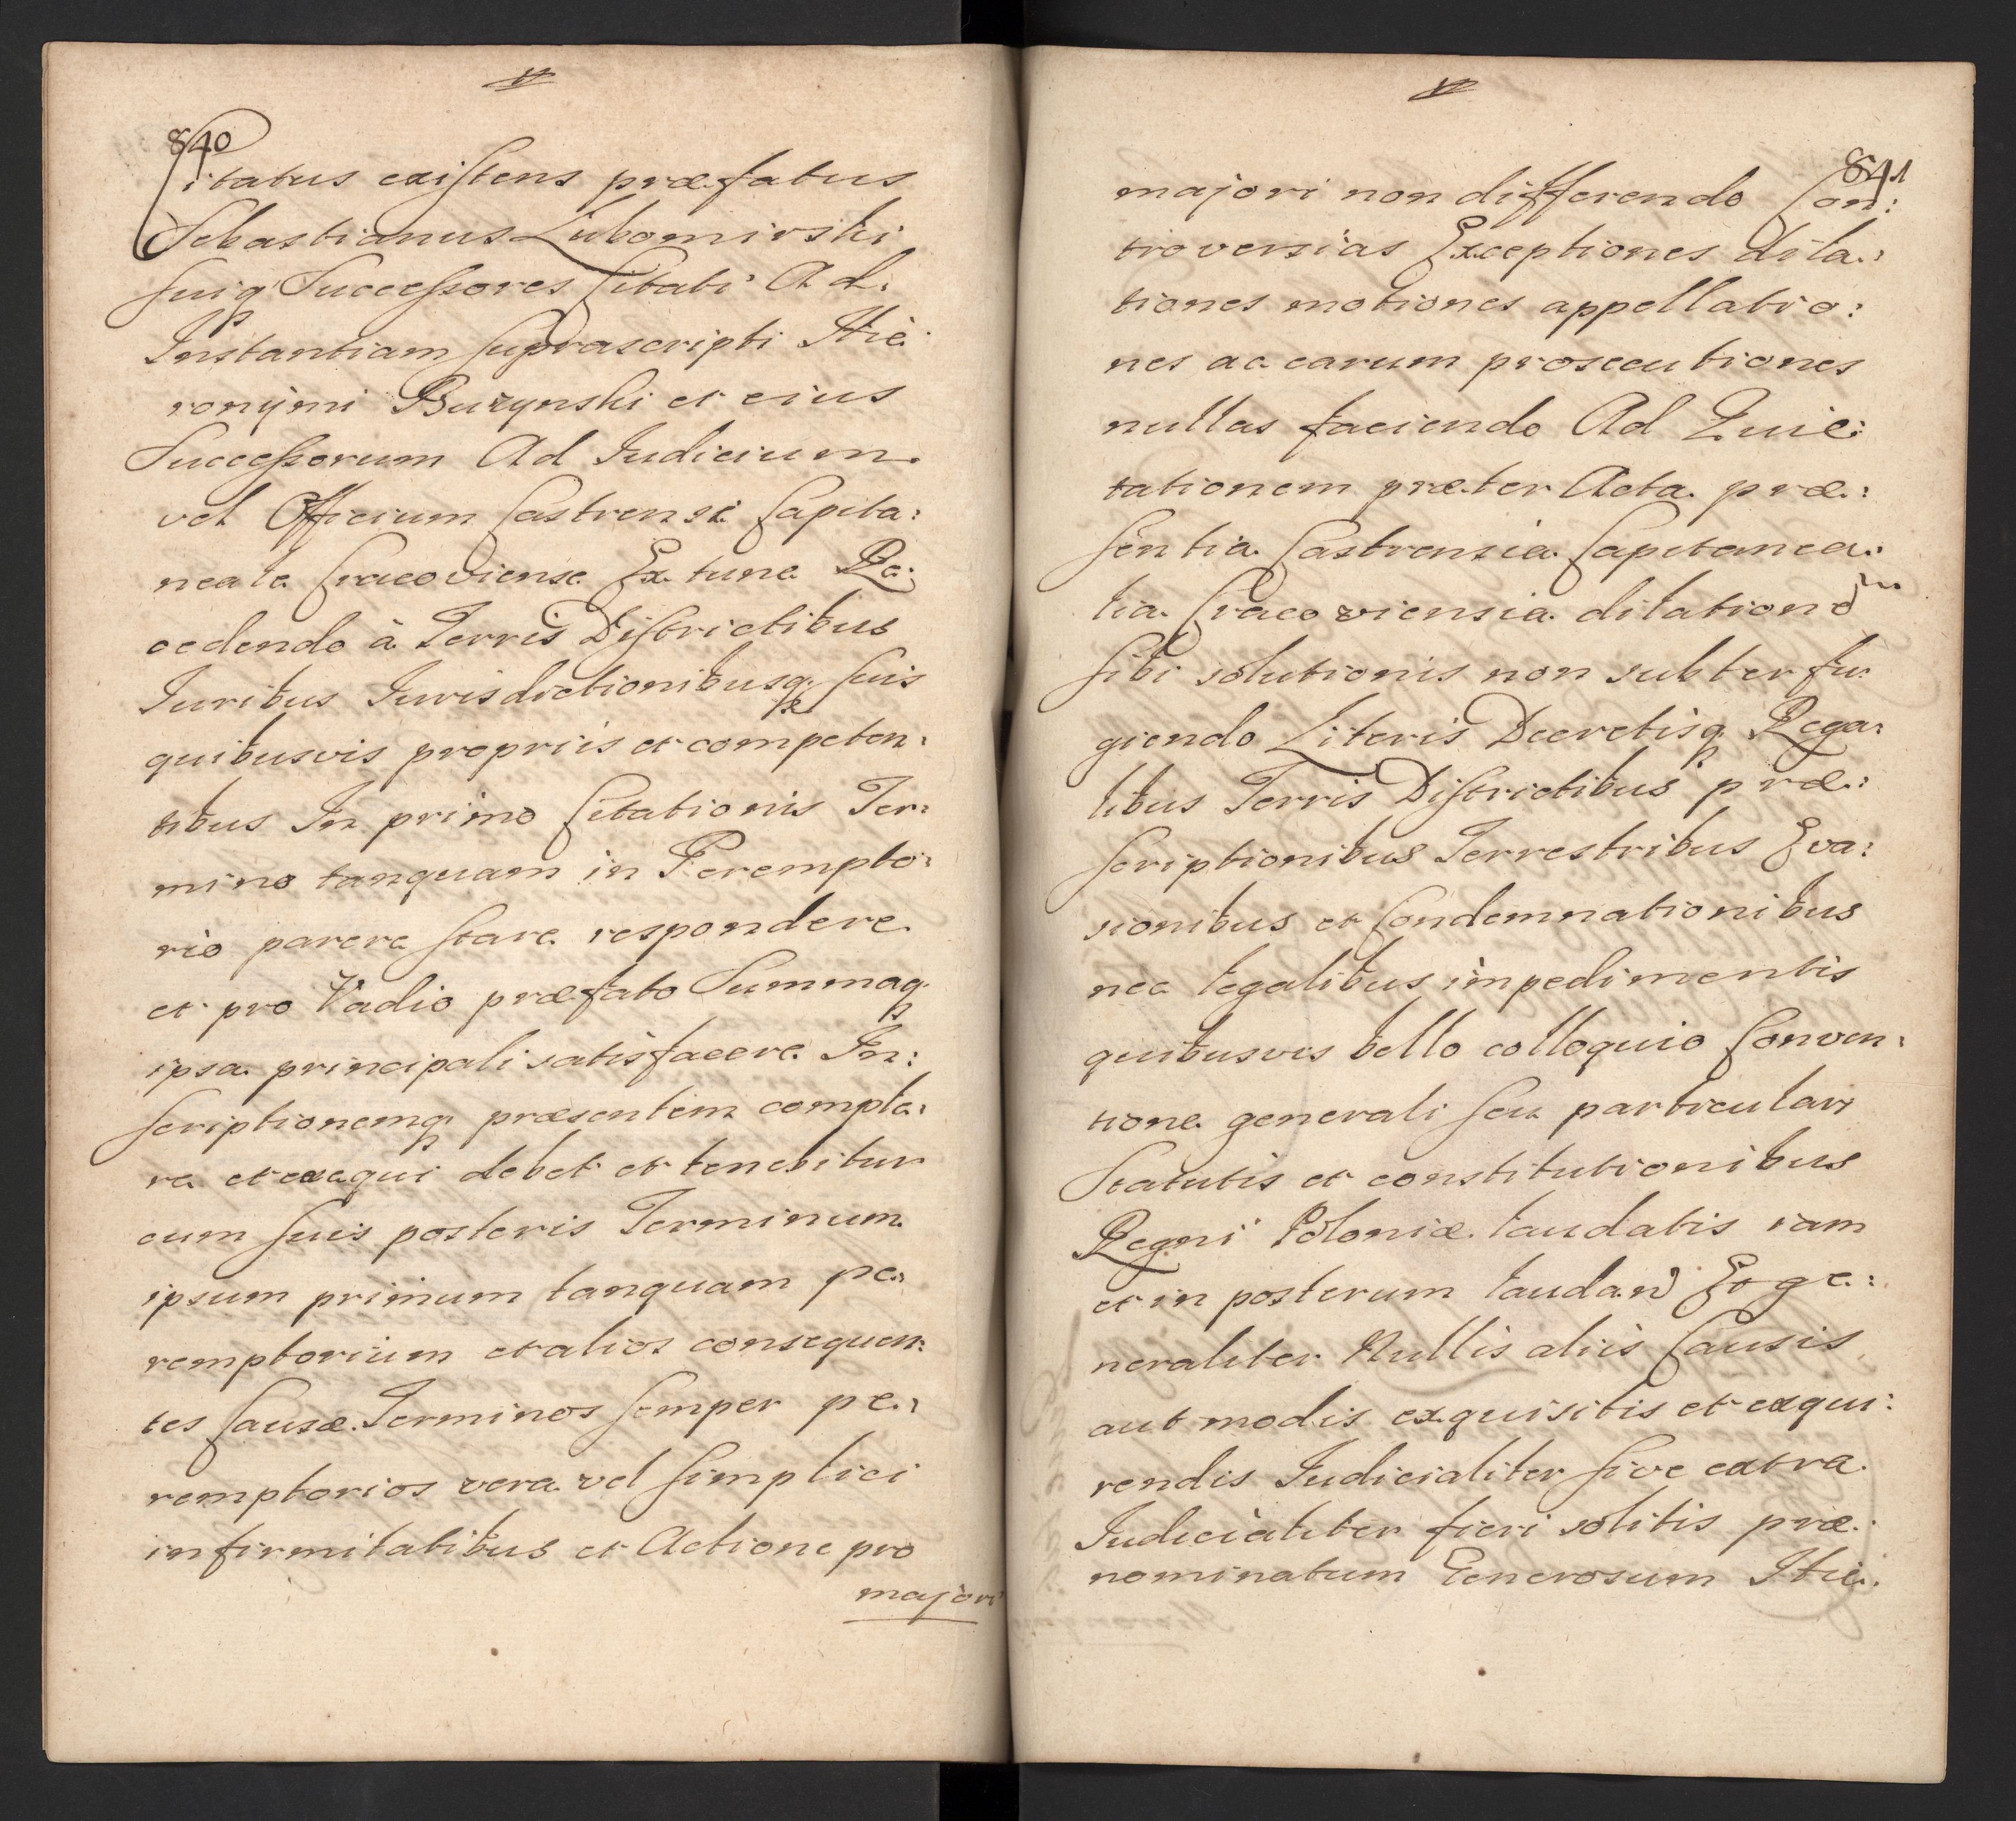 840
Citatus existens præfatus
Sebastianus Lubomirski
suiq Successores Citati Ad
Instantiam suprascripti Hie
ronÿmi Buzynski et eius
Successorum Ad Judicium
vel Officium Castrense Capita:
neale Cracoviense Ex tunc Re:
cedendo à Terris Districtibus
Juribus Jurisdictionibusq suis
quibusvis proprijs et competen:
tibus In primo Citationis Ter:
mino tanquam in Perempto:
rio parere stare respondere
et pro Vadio præfato Summaq
ipsa principali satisfacere In:
scriptionemq præsentem comple:
re et exequi debet et tenebitur
cum suis posteris Terminum
ipsum primum tanquam pe:
remptorium et alios consequen:
tes Causæ Terminos semper pe:
remptorios vera vel simplici
infirmitatibus et Actione pro
majori
841
majori non differendo Con:
troversias Exceptiones dila:
tiones motiones appellatio:
nes ac earum prosecutiones
nullas faciendo Ad Quie:
tationem præter Acta præ:
sentia Castrensia Capitanea:
lia Cracoviensia dilationem
sibi solutionis non subterfu:
giendo Literis Decretisq Rega:
libus Terris Districtibus præ:
scriptionibus Terrestribus Eva:
sionibus et Condemnationibus
nec legalibus impedimentis
quibusvis bello colloquio Conven:
tione generali seu particulari
Statutis et constitutionibus
Regni Poloniæ laudatis iam
et in posterum laudand Et ge:
neraliter Nullis alijs Causis
aut modis exquisitis et exqui:
rendis Judicialiter sive extra
Judicialiter fieri solitis præ:
nominatum Generosum Hie: